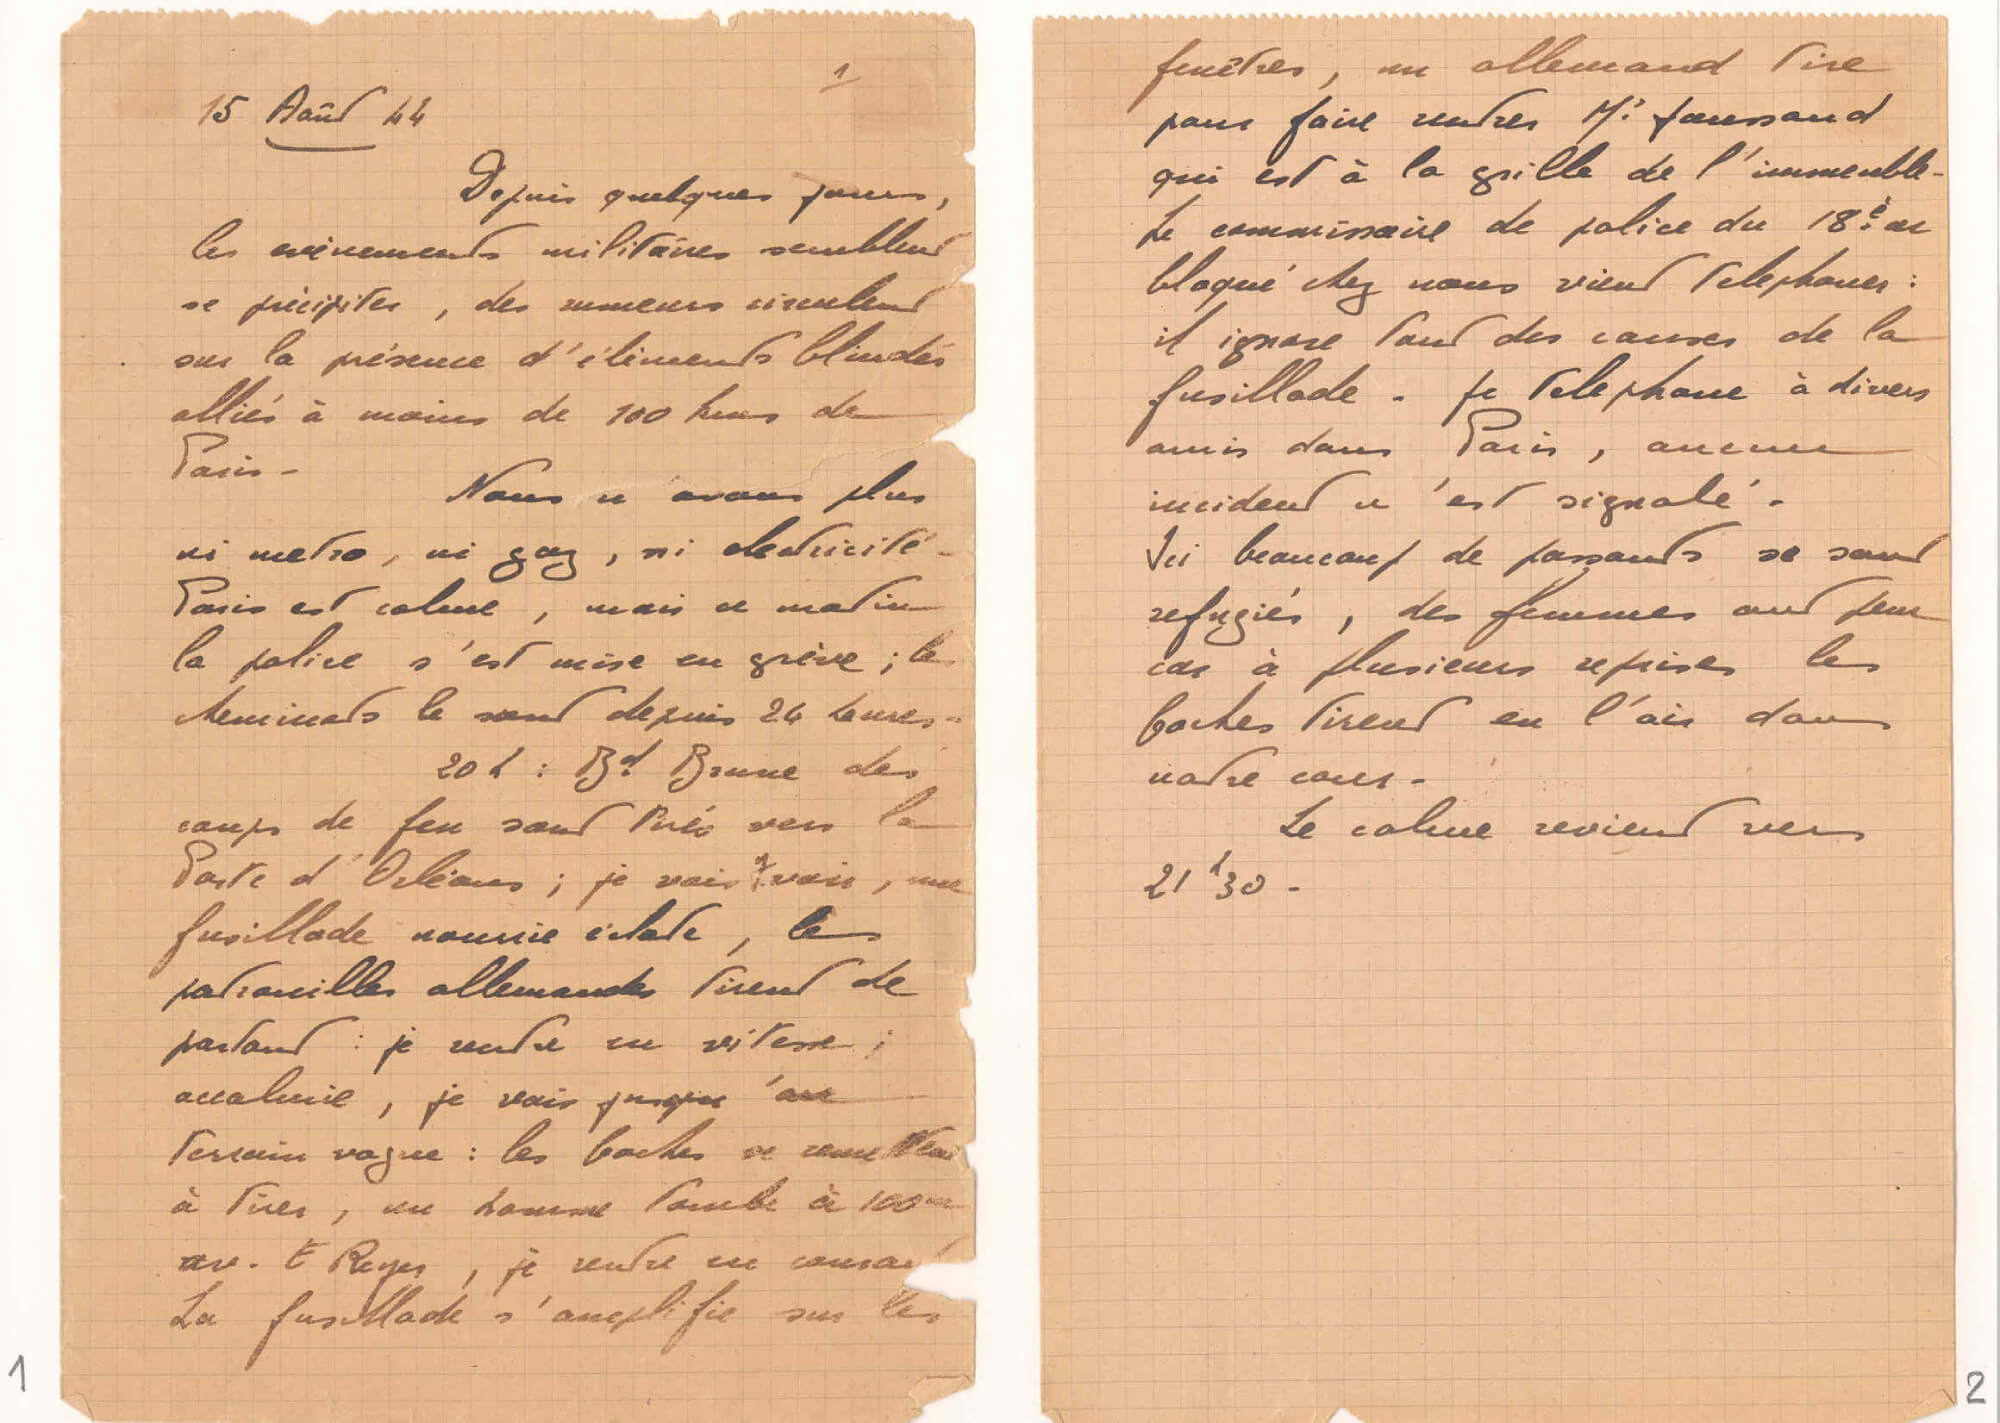 1
15 Août 44
Depuis quelques jours,
les evènements militaires semblent
se précipiter, des rumeurs circulent
sur la présence d'éléments blindés
alliés à moins de 100 kms de
Paris -
Nous n'avons plus
ni metro, ni gaz, ni electricité -
Paris est calme, mais ce matin
la police s'est mise en grève ; les
cheminots le sont depuis 24 heures -
20 h : Bd Brune des
coups de feu sont tirés vers la
Porte d'Orléans ; je vais y voir, une
fusillade nourrie éclate, les
patrouilles allemandes tirent de
partout : je rentre en vitesse ;
accalmie, je vais jusqu'au
terrain vague : les boches se remettent
à tirer, un homme tombe à 100 m
ave. E Reyer, je rentre en courant
La fusillade s'amplifie sur les
1
fenêtres, un allemand tire
pour faire rentrer Mr
qui est à la grille de l'immeuble -
Le commissaire de police du 18è ar
bloqué chez nous vient telephoner :
il ignore tout des causes de la
fusillade - Je telephone à divers
amis dans Paris, aucun
incident n'est signalé -
Ici beaucoup de passants se sont
refugiés, des femmes ont peur
car à plusieurs reprises les
boches tirent en l'air dans
notre cour -
Le calme revient vers
21 h 30 -
2